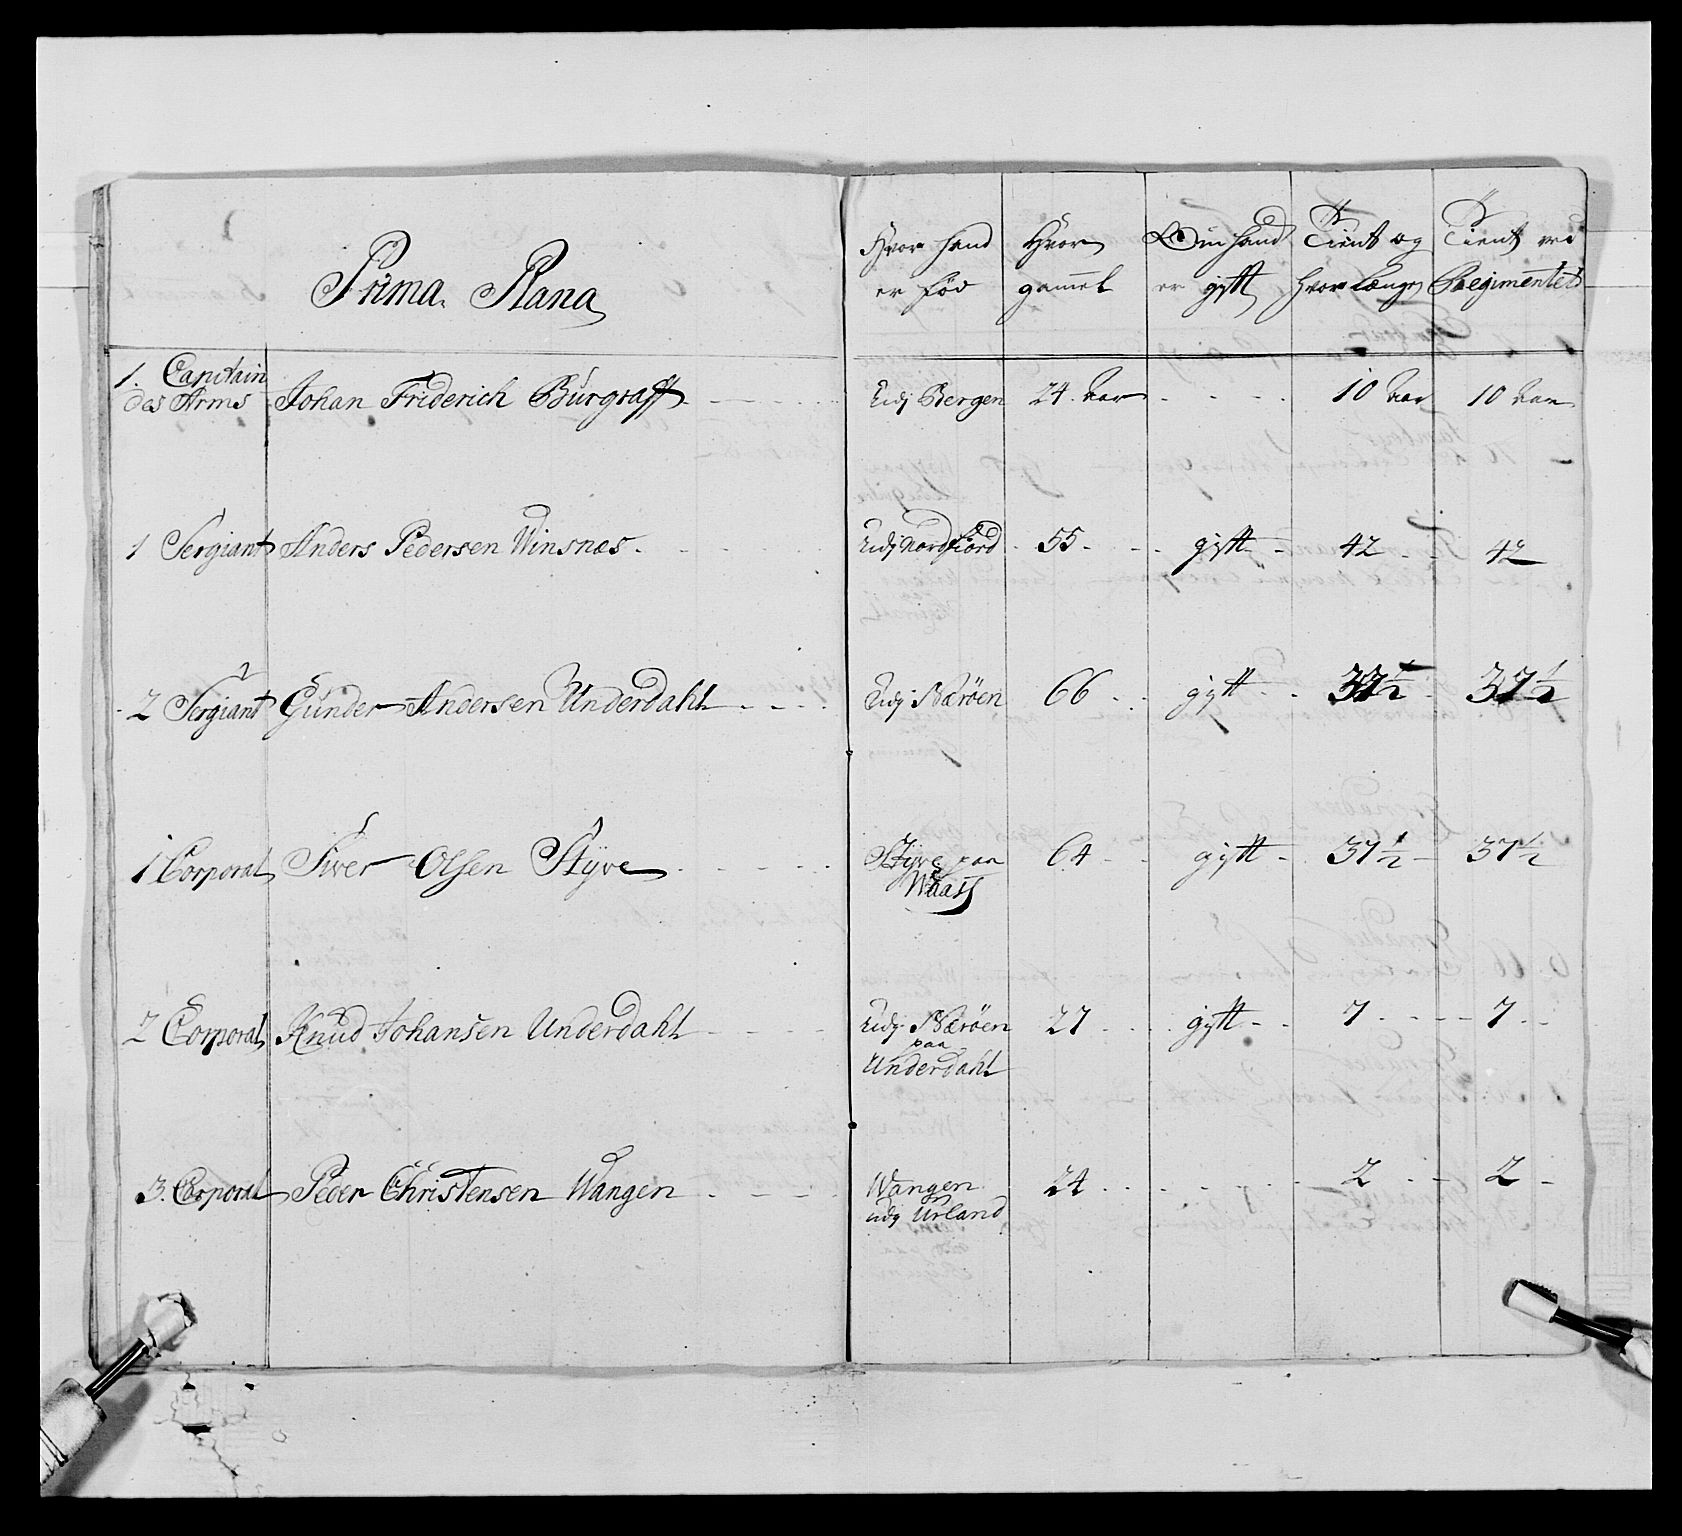 Prima Plana
Hvor hand er fød
Hvor gammel
Om hand er gift
Tient og hvor længe
Tient ved Regimentet
1. Capitain des Arms Johan Friderich Burgraff udj Bergen 24 Aar 10 Aar 10 Aar
1 Sergiant Anders Pedersen Winsnæs udj Nordfiord 55 gift 42 42
2 Sergiant Gunder Andersen Underdahl udj Nærøen 66 gift 37 1/2 37 1/2
1 Corporal Siver Olssen Styve Styve paa Waass 64 gift 37 1/2 37 1/2
2 Corporal Knud Johansen Underdahl udj Nærøen paa Underdahl 27 gift 7 7
3. Corporal Peder Christensen Wangen Wangen udj Urland 24 2 2